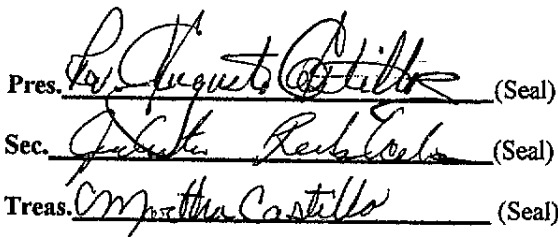 Pres. Rev. Augusto Castillo (Seal)
Sec. (Seal)
Treas. Martha Castillo (Seal)